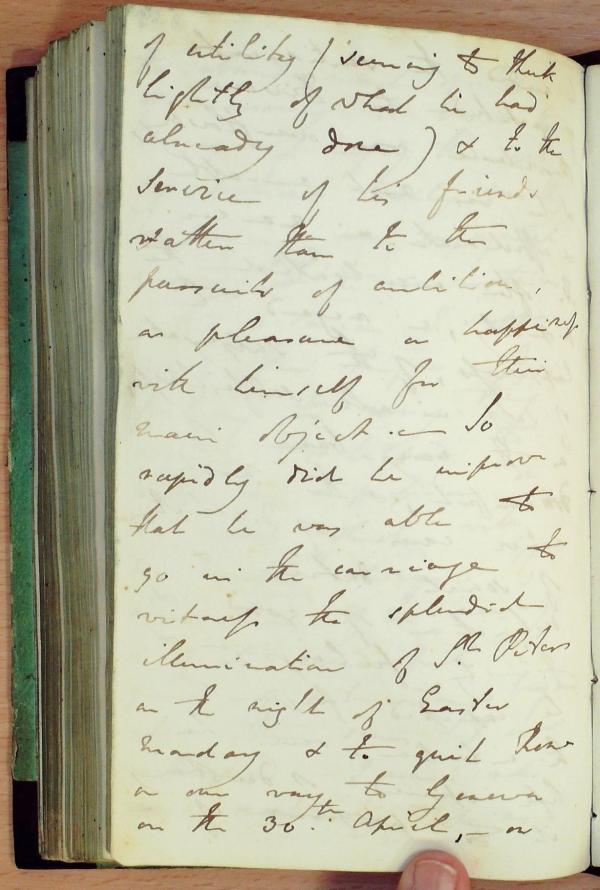 of utility (seeming to think
lightly of what he had
already done) & to the
service of his friends
rather than to the
pursuits of ambition,
or pleasure or happiness
with himself for their
main object. — So
rapidly did he improve
that he was able to
go in the carriage to
witness the splendid
illumination of St. Peters
on the night of Easter
Monday & to quit Rome
on our way to Geneva
on the 30th. April, — on